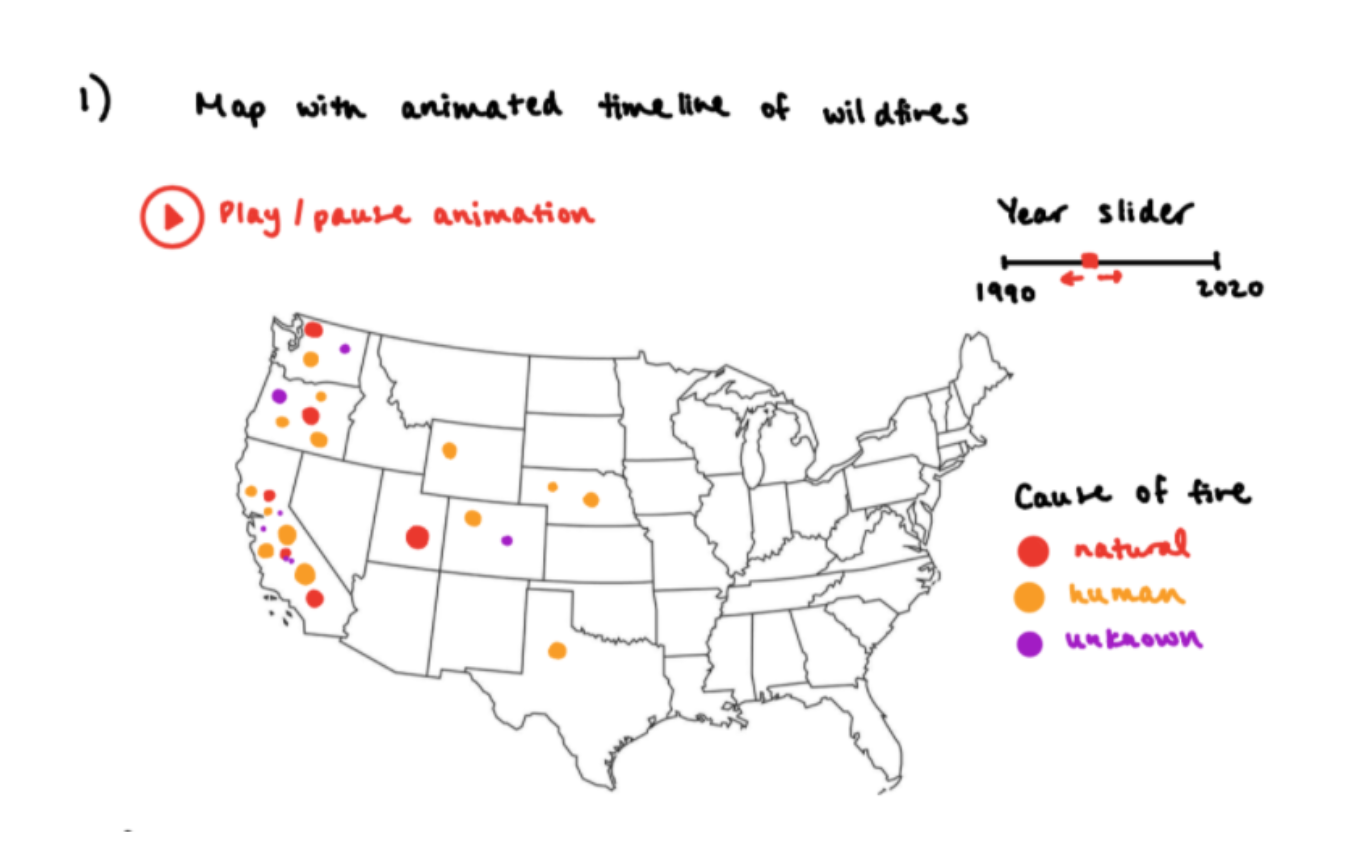 1) Map with animated timeline of wildfires
Play / pause animation
Year slider
1990 2020
Cause of fire
natural
human
unknown